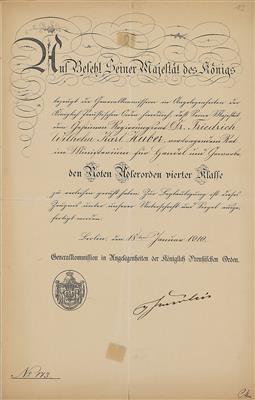 Auf Befehl Seiner Majestät des Königs
bezeugt die Generalkommission in Angelegenheiten der
Königlich Preußischen Orden hierdurch daß Seine Majestät
dem Geheimen Regierungsrat Dr. Friedrich
Wilhelm Karl Huber, vortragendem Rat
im Ministerium für Handel und Gewerbe
den Roten Adlerorden vierter Klasse
zu verleihen geruht haben. Zur Beglaubigung ist dieses
Zeugnis unter unserer Unterschrift und Siegel ausge-
fertigt worden.
Berlin, den 18ten Januar 1910.
Generalkommission in Angelegenheiten der Königlich Preußischen Orden.
No 113.